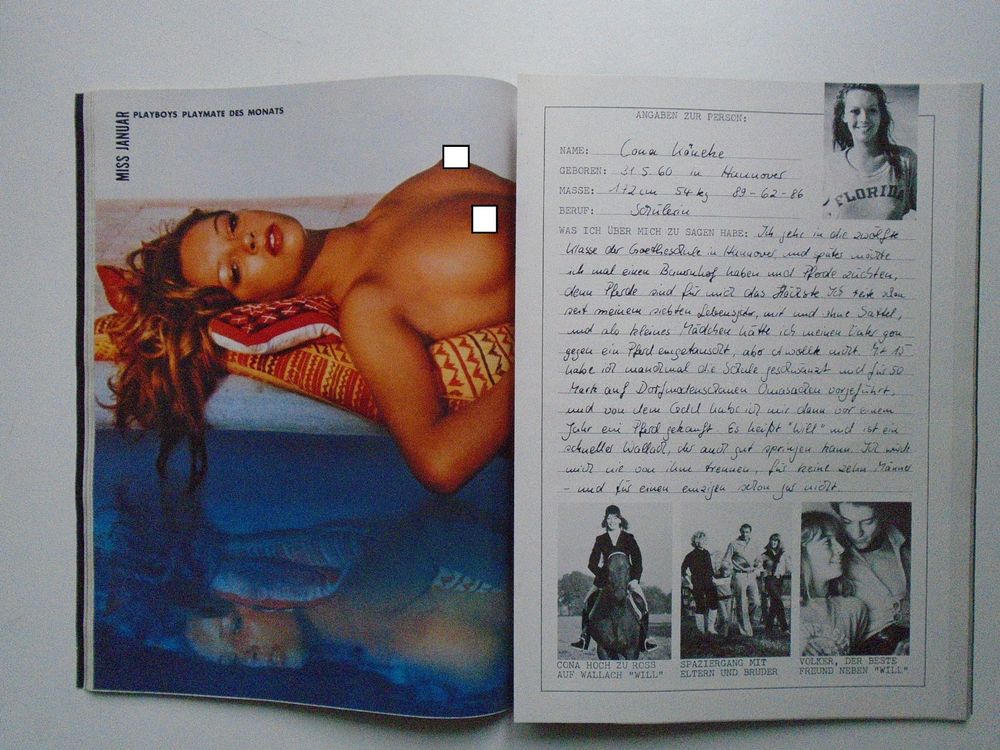 MISS JANUAR
PLAYBOYS PLAYMATE DES MONATS
ANGABEN ZUR PERSON:
NAME: Cona
GEBOREN: 31.5.60 in Hannover
MASSE: 172 cm 54 kg 89-62-86
BERUF: Schülerin
FLORIDA
WAS ICH ÜBER MICH ZU SAGEN HABE: Ich gehe in die zwölfte
Klasse der Goetheschule in Hannover, und später möchte
ich mal einen Bauernhof haben und Pferde züchten,
denn Pferde sind für mich das Höchste. Ich reite schon
seit meinem siebten Lebensjahr, mit und ohne Sattel,
und als kleines Mädchen hätte ich meinen Vater gern
gegen ein Pferd eingetauscht, aber er wollte nicht. Mit 15
habe ich manchmal die Schule geschwänzt und für 50
Mark auf Dorfmodenschauen Omasachen vorgeführt,
und von dem Geld habe ich mir dann vor einem
Jahr ein Pferd gekauft. Es heißt "Will" und ist ein
schneller Wallach, der auch gut springen kann. Ich würde
mich nie von ihm trennen, für keine zehn Männer
- und für einen einzigen schon gar nicht.
CONA HOCH ZU ROSS
AUF WALLACH "WILL"
SPAZIERGANG MIT
ELTERN UND BRUDER
VOLKER, DER BESTE
FREUND NEBEN "WILL"